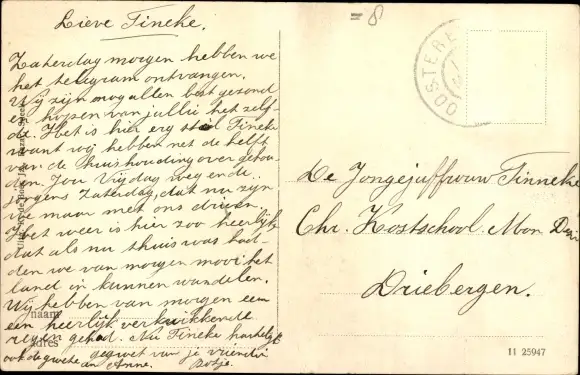 Lieve Tineke.
Zaterdag morgen hebben we
het telegram ontvangen.
Wij zijn nog allen best gezond
en hopen van jullie het zelf
de. Het is hier erg stil Tineke
want wij hebben net de helft
van de huishouding over gehou
den. Jou Vrijdag weg en de
jongens Zaterdag, dat nu zijn
we maar met ons drieën.
Het weer is hier zoo heerlijk
dat als nu thuis was had-
den we van morgen mooi het
land in kunnen wandelen.
Wij hebben van morgen een
een heerlijk verkwikkende
regen gehad. Nu Tineke hartelijk
gegroet van je vriendin
ook de groete
an Anne.
naam
adres
8
OOSTERE
De Jongejuffrouw Tinneke
Chr. Kostschool. Mon
Driebergen.
11 25947